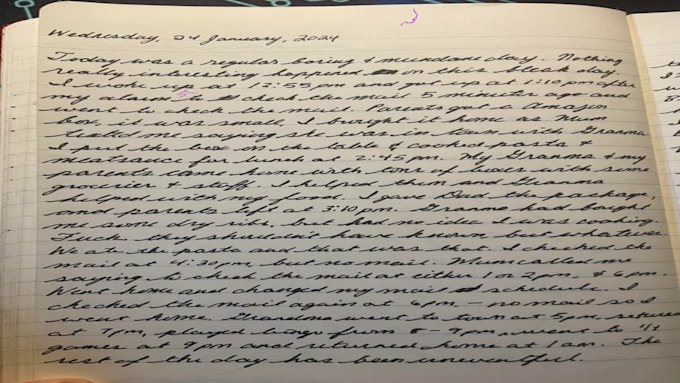 Wednesday, 24 January, 2024
Today was a regular boring & mundane day. Nothing
really interesting happened on this bleak day.
I woke up at 12:55pm and got up at 1:10pm after
my alarm to check the mail 5 minutes ago and
went to check the mail. Parents got a Amazon
box, it was small, I brought it home as Mum
texted me saying she was in town with Granma
I put the box on the table & cooked pasta &
meatsauce for lunch at 2:45pm. My Granma & my
parents came home with tons of boxes with some
groceries & stuff. I helped them and Granma
helped with my food. I gave Dad the package,
and parents left at 3:10pm. Granma had bought
me some dry ribs, but had no idea I was cooking.
Fuck they shouldn't have known but whatever.
We ate the pasta and that was that. I checked the
mail at 4:30pm, but no mail. Mum called me
saying to check the mail at either 1 or 2pm, & 6pm.
Went home and changed my mail schedule. I
checked the mail again at 6pm - no mail so I
went home. Grandma went to town at 5pm, returned
at 7pm, played bingo from - 9pm, went to
games at 9pm and returned home at 1am. The
rest of the day has been uneventful.